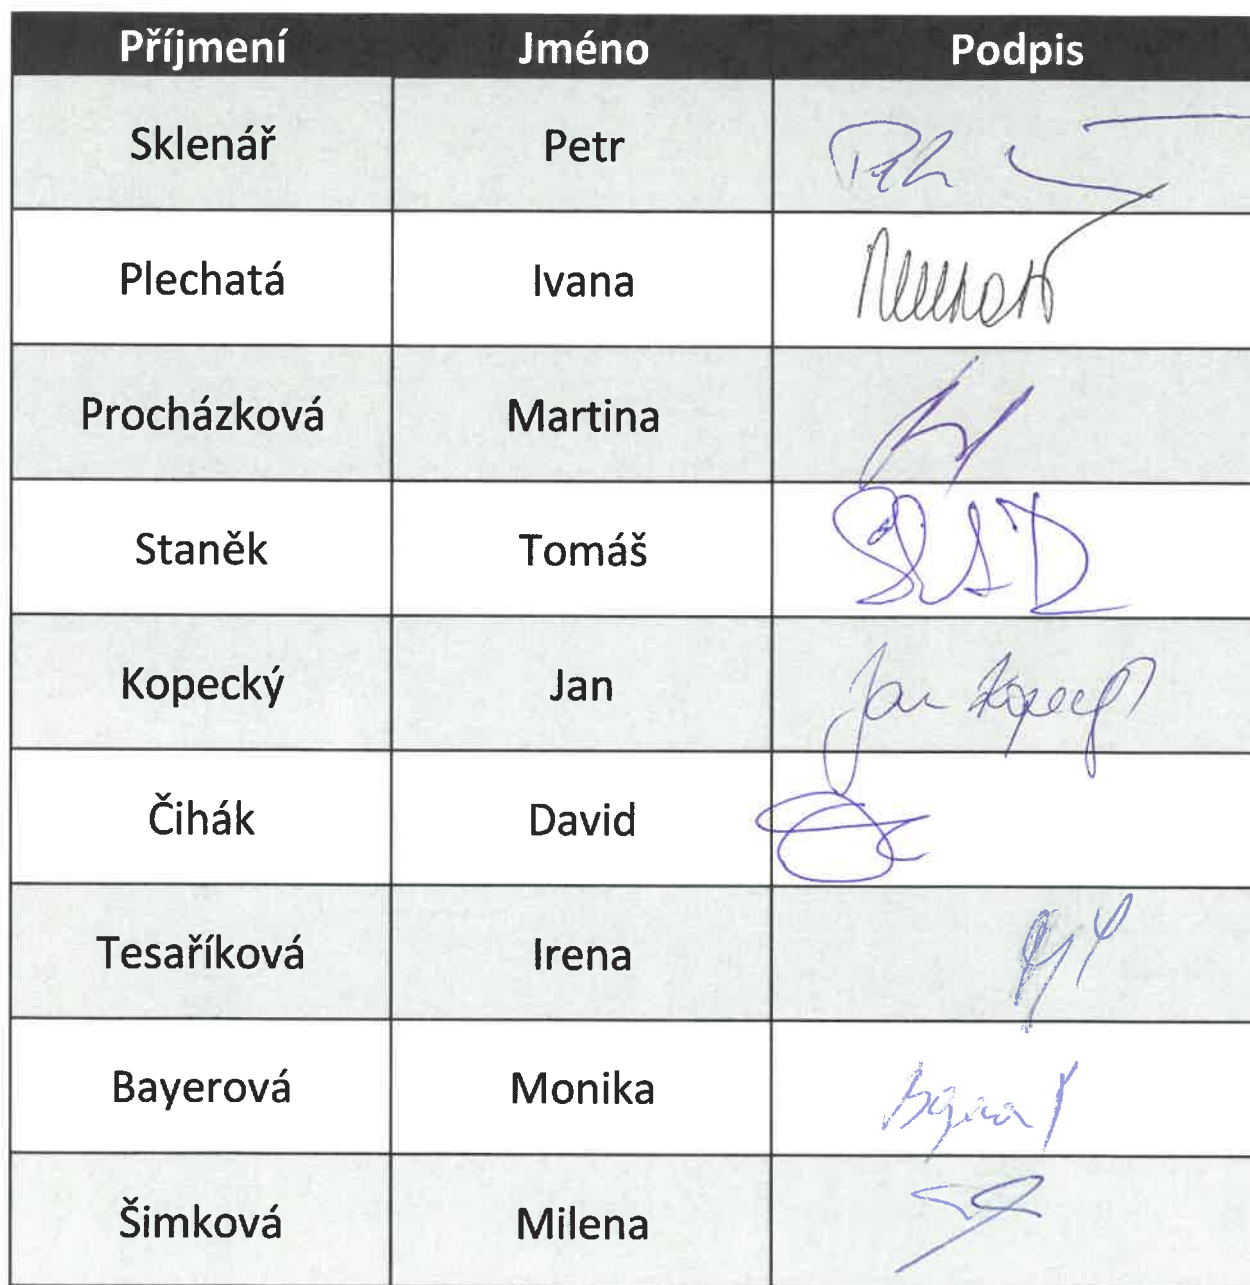 Příjmení Jméno Podpis
Sklenář Petr
Plechatá Ivana
Procházková Martina
Staněk Tomáš
Kopecký Jan Jan Kopecký
Čihák David
Tesaříková Irena
Bayerová Monika
Šimková Milena